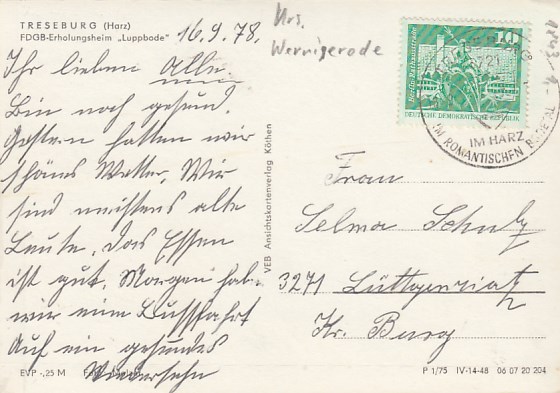 TRESEBURG (Harz)
FDGB-Erholungsheim „Luppbode"
16.9.78.
Ihr lieben Alle.
Bin noch gesund.
Gestern hatten wir
schönes Wetter. Wir
sind meistens alte
Leute. Das Essen
ist gut. Morgen hab.
wir eine Busfahrt
Auf ein gesundes
Wiedersehn
EVP -,25 M
VEB Ansichtskartenverlag Köthen
Krs.
Wernigerode
10
Berlin, Rathausstraße
DEUTSCHE DEMOKRATISCHE REPUBLIK
IM HARZ
IM ROMANTISCHEN
Frau
Selma Schulz
3271 Lüttgenziatz
Kr. Burg
P 1/75 IV-14-48 06 07 20 204